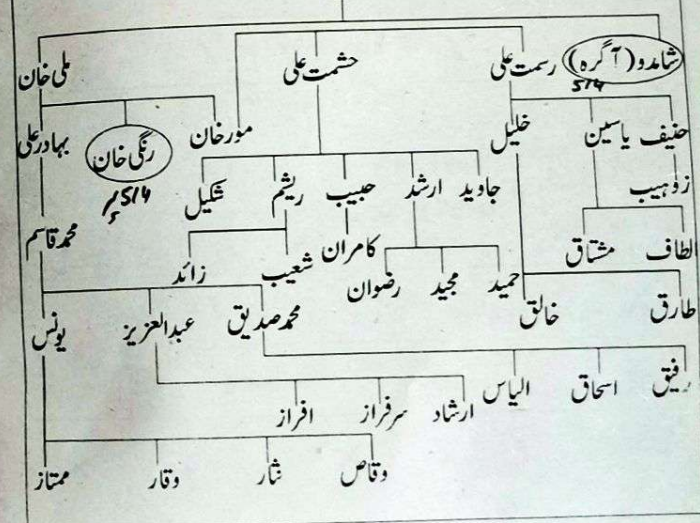 شامدو (آگرہ) رسمت علی حشمت علی ملی خان
5/4
حنیف یاسین خلیل مور خان رنگی خان بہادر علی
5/4
زوہیب جاوید ارشد حبیب ریشم شکیل
الطاف مشتاق کامران محمد قاسم
حمید مجید رضوان شعیب زائد
طارق خالق محمد صدیق عبدالعزیز یونس
رفیق اسحاق الیاس ارشاد سرفراز افراز
وقاص نثار وقار ممتاز